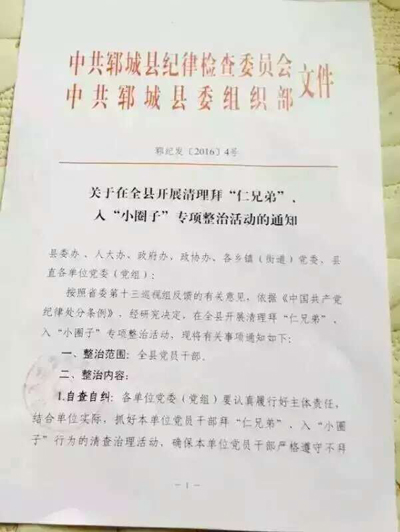 中共郓城县纪律检查委员会
中共郓城县委组织部
文件
郓纪发〔2016〕4号
关于在全县开展清理拜“仁兄弟”、
入“小圈子”专项整治活动的通知
县委办、人大办、政府办、政协办、各乡镇（街道）党委、县
直各单位党委（党组）：
按照省委第十三巡视组反馈的有关意见，依据《中国共产党
纪律处分条例》，经研究决定，在全县开展清理拜“仁兄弟”、
入“小圈子”专项整治活动，现将有关事项通知如下：
一、整治范围：全县党员干部。
二、整治内容：
1.自查自纠：各单位党委（党组）要认真履行好主体责任，
结合单位实际，抓好本单位党员干部拜“仁兄弟”、入“小圈
子”行为的清查治理活动，确保本单位党员干部严格遵守不拜
- 1 -